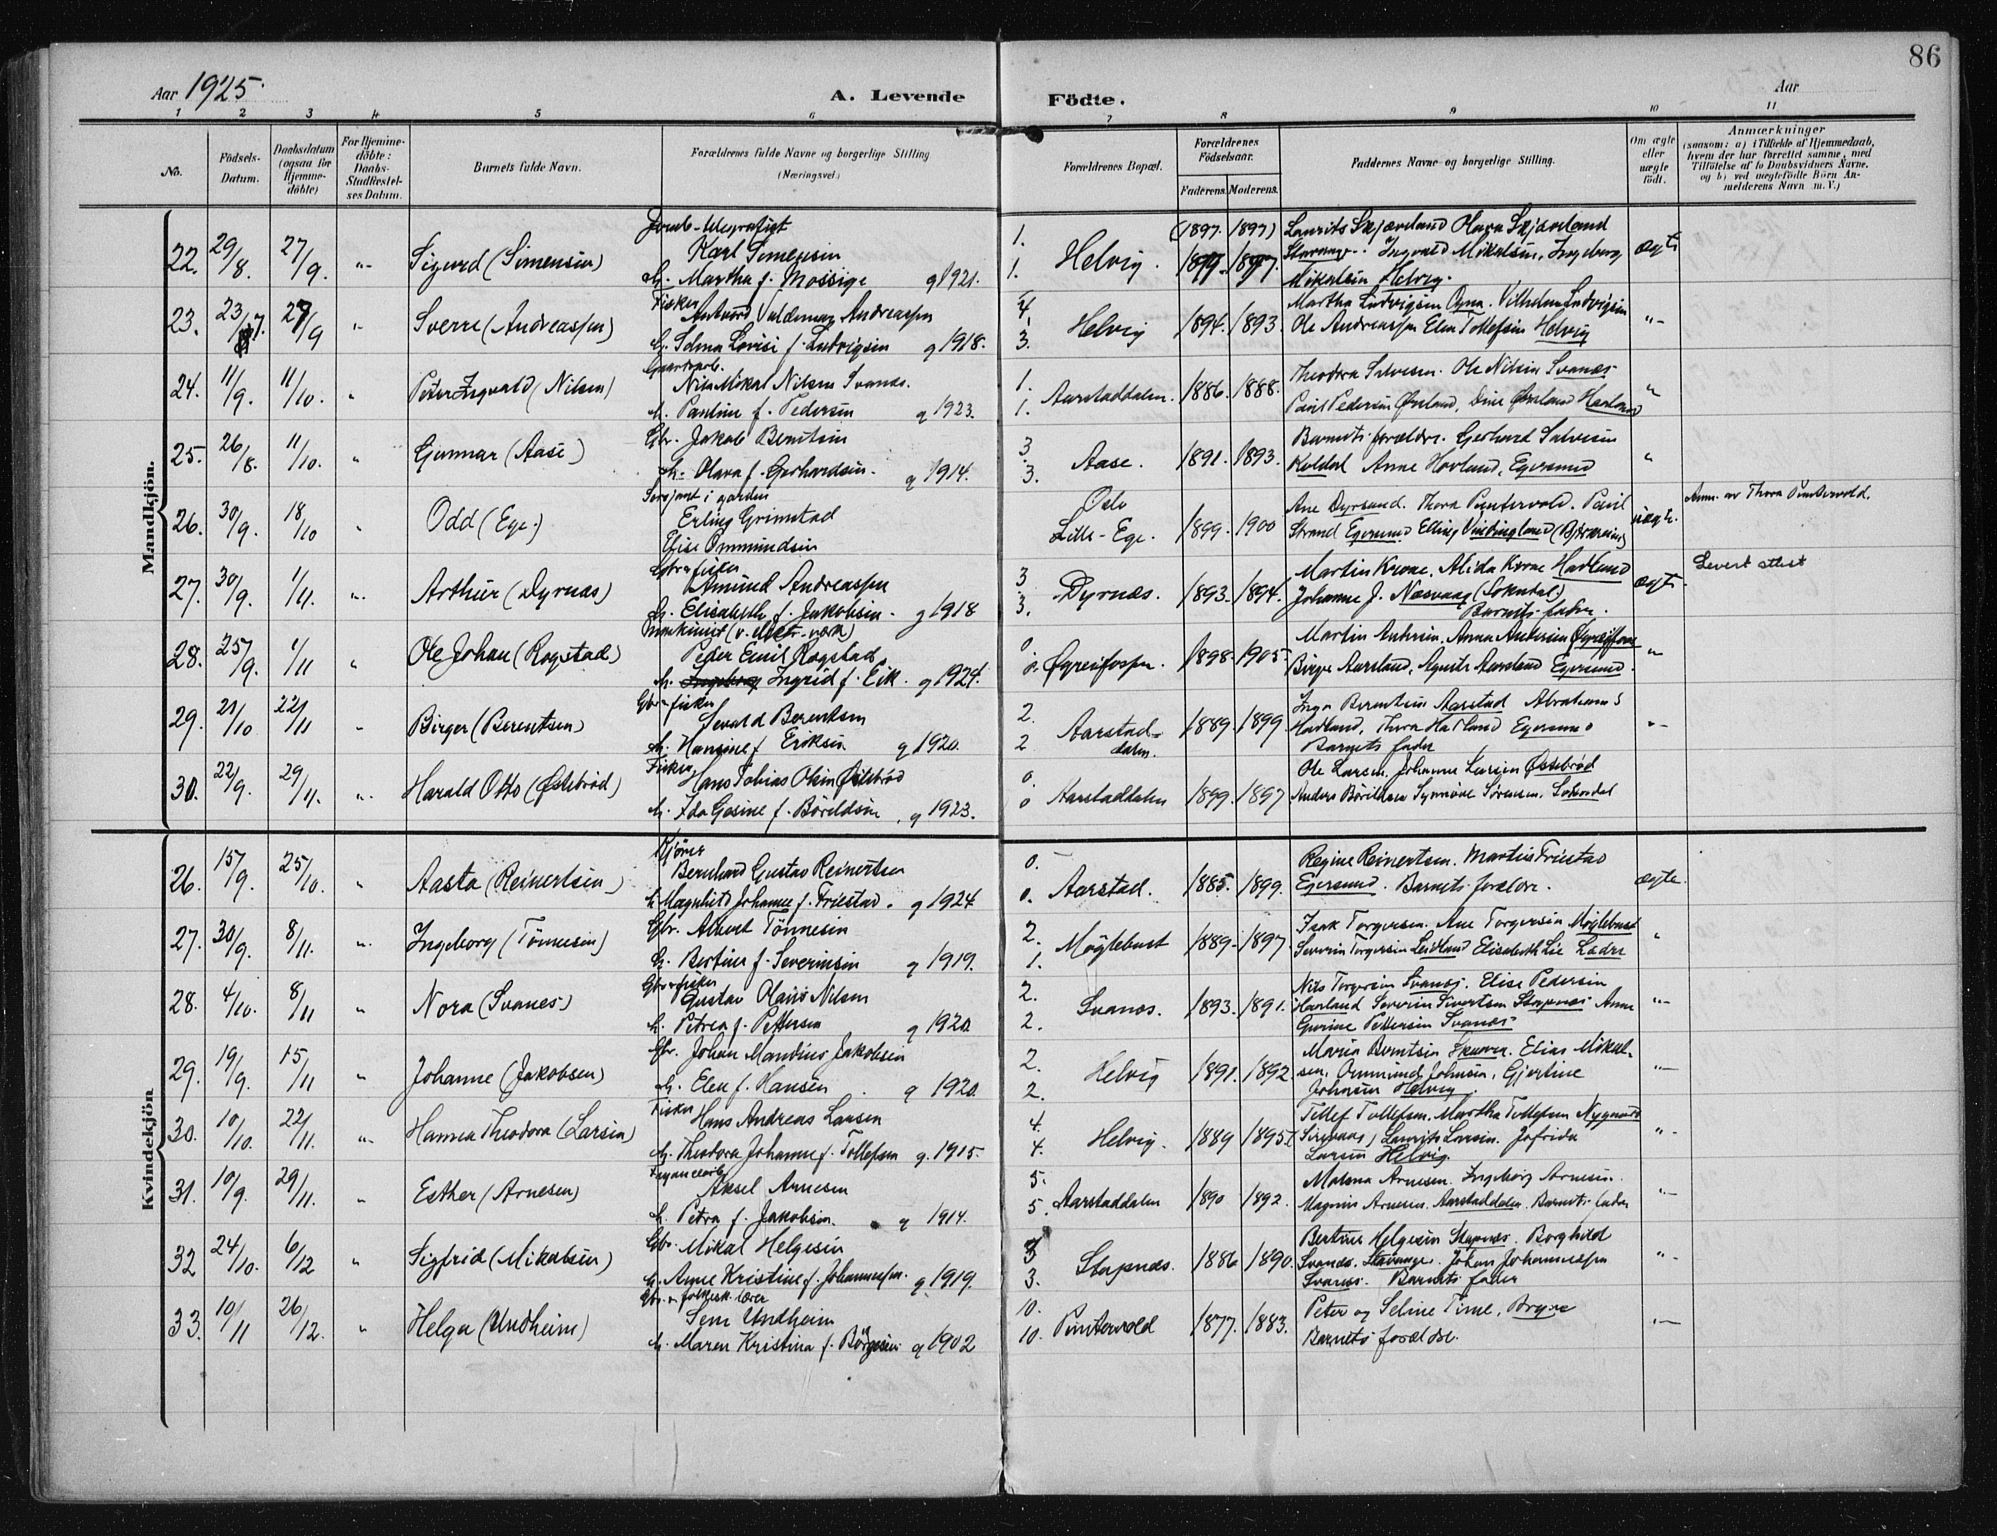 86
Aar 1925.
A. Levende Födte.
Aar
1 2 3 4 5 6 7 8 9 10 11
No.
Födsels-Datum.
Daabsdatum (ogsaa for Hjemmedöbte)
For Hjemmedöbte: Daabs-Stadfæstelses Datum.
Barnets fulde Navn.
Forældrenes fulde Navne og borgerlige Stilling
(Næringsvei.)
Forældrenes Bopæl.
Forældrenes Födselsaar.
Faderens. Moderens.
Faddernes Navne og borgerlige Stilling.
Om ægte eller uægte födt.
Anmærkninger
(saasom: a) i Tilfælde af Hjemmedaab,
hvem der har forrettet samme, med
Tilföielse af to Daabsvidners Navne.
og b) ved uægtefödte Börn Anmelderens Navn m. V.)
Mandkjön.
Jernb-telegrafist (1897. 1897) Laurits Skjæveland Olava Skjæveland
22. 29/8. 27/9. Sigurd (Simensen) Karl Simensen 1. 1. Helvig. Stavanger. Ingvald Mikalsen, Ingeborg ægte
h. Martha f. Mossige g 1921. Mikalsen Helvig.
Fisker Valdemar Andreassen Martha Ludvigsen Vilhelm Ludvigsen
23. 23/7. 27/9 Sverre (Andreassen) 4. 3. Helvig 1894. 1893. Ole Andreassen Elen Tollefsen Helvig
h. Selma Lovise f. Ludvigsen g 1918.
24. 11/9. 11/10. Peter Ingvald (Nilsen) Nils Mikal Nilsen Svanes. 1. 1. Aarstaddalen. 1886. 1888. Theodora Salvesen. Ole Nilsen Svanes
h. Pauline f. Pedersen g 1923. Paul Pedersen
25. 26/8. 11/10. Gunnar (Aase) Gbr. Jakob Berntsen 3. 3. Aase. 1891. 1893. Barnets forældre. Gerhard Salvesen
h. Olava f. Gerhardsen. g 1914. Koldal Anne Hovland, Egersund
Sersjant i garden Oslo Ane Dyrsund. Thora Puntervold. Paul Anm. av Thora Puntervold.
26. 30/9. 18/10 Odd (Ege.) Erling Grimstad Lille-Ege. 1899. 1900 Strand Egersund Elling uægte.
Elise Ommundsen
27. 30/9. 1/11. Arthur (Dyrnæs) Amund Andreassen 3. 3. Dyrnæs. 1893. 1894. Martin Krone, Alida Krone Hadland ægte Levert attest
h. Elisabeth f. Jakobsen. g 1918 Johanne J. Næsvaag (Sokndal) Barnets fader.
28. 25/9. 1/11 Ole Johan (Rogstad) Peder Emil Rogstad 0. 0. 1898. 1905. Martin Andersen, Anna Andersen
h. Ingrid f. Eik. g 1924. Birge Aarstad, Agnete Aarstad Egersund.
Gbr-fisker Inga Berentsen Aarstad Abraham
29. 21/10 22/11 Birger (Berentsen) Sevald Berentsen 2. 2 Aarstaddalen. 1889. 1899 Hadland, Thora Hadland Egersund
h. Hansine f. Eriksen g 1920. Barnets fader
Fisker Ole Larsen. Johanne Larsen Østebrød
30. 22/9. 29/11. Harald Otto (Østebrød) Hans Tobias Olsen Østebrød 0 0 Aarstaddalen 1899. 1897 Anders Bårildsen Synnøve Sørensen. Sokndal
h. Ida Gosine f. Bårildsen. g 1923.
Kvindekjön
Kjører Regine Reinertsen. Martin Friestad
26. 15/9. 25/10. Aasta (Reinertsen) Bernhard Gustav Reinertsen 0. 0. Aarstad. 1885. 1899. Egersund. Barnets forældre. ægte.
h. Magnhild Johanne f. Friestad. g 1924
27. 30/9. 8/11. Ingeborg (Tönnesen) Gbr. Albert Tönnesen 2. 1. Møglebust 1889. 1897. Isak Torgersen. Ane Torgersen Møglebust
h. Bertine f. Severinsen g 1919. Severin Torgersen Leidland Elisabeth Lie
Gbr-fisker Nils Torgersen Svanes. Elise Pedersen
28. 4/10. 8/11 Nora (Svanes) Gustav Olaus Nilsen 2. 2. Svanes. 1893. 1891. Havland Severin Sivertsen Stapnes Anne
h. Petrea f. Pettersen g 1920. Gurine Pettersen Svanes
29. 19/9. 15/11 Johanne (Jakobsen) Gbr. Johan Mandius Jakobsen 2. 2. Helvig 1891. 1892. Maria Berntsen Skaara. Elias Mikalsen, Ommund Johnsen, Gjertine
h. Elen f. Hansen g 1920. Johnsen Helvig.
Fisker Tollef Tollefsen. Martha Tollefsen Nygaard
30. 10/10. 22/11. Hanna Theodora (Larsen) Hans Andreas Larsen 4. 4. Helvig. 1889 1895 (Sirevaag) Laurits Larsen. Jofrida
h. Theodora Johanne f. Tollefsen g. 1915. Larsen Helvig.
31. 10/9. 29/11. Esther (Arnesen) Aksel Arnesen 5. 5. Aarstaddalen 1890 1892. Malena Arnesen. Ingeborg Arnesen.
h. Petra f. Jakobsen. g 1914. Magnus Arnesen. Aarstaddalen. Barnets fader
32 24/10. 6/12 Sigfrid (Mikalsen) Gbr. Mikal Helgesen 3 3. Stapnes. 1886 1890. Bertine Helgesen Stapnes. Borghild
h. Anne Kristine f. Johannessen. g 1919. Svanes. Stavanger. Johan Johannessen Svanes. Barnets fader
Gbr. folkesk. lærer
33. 10/11 26/12. Helga (Undheim) Sem Undheim 10. 10. Puntervold 1877. 1883. Peter og Seline Time, Bryne
h. Maren Kristina f. Börgesen g 1902 Barnets forældre.